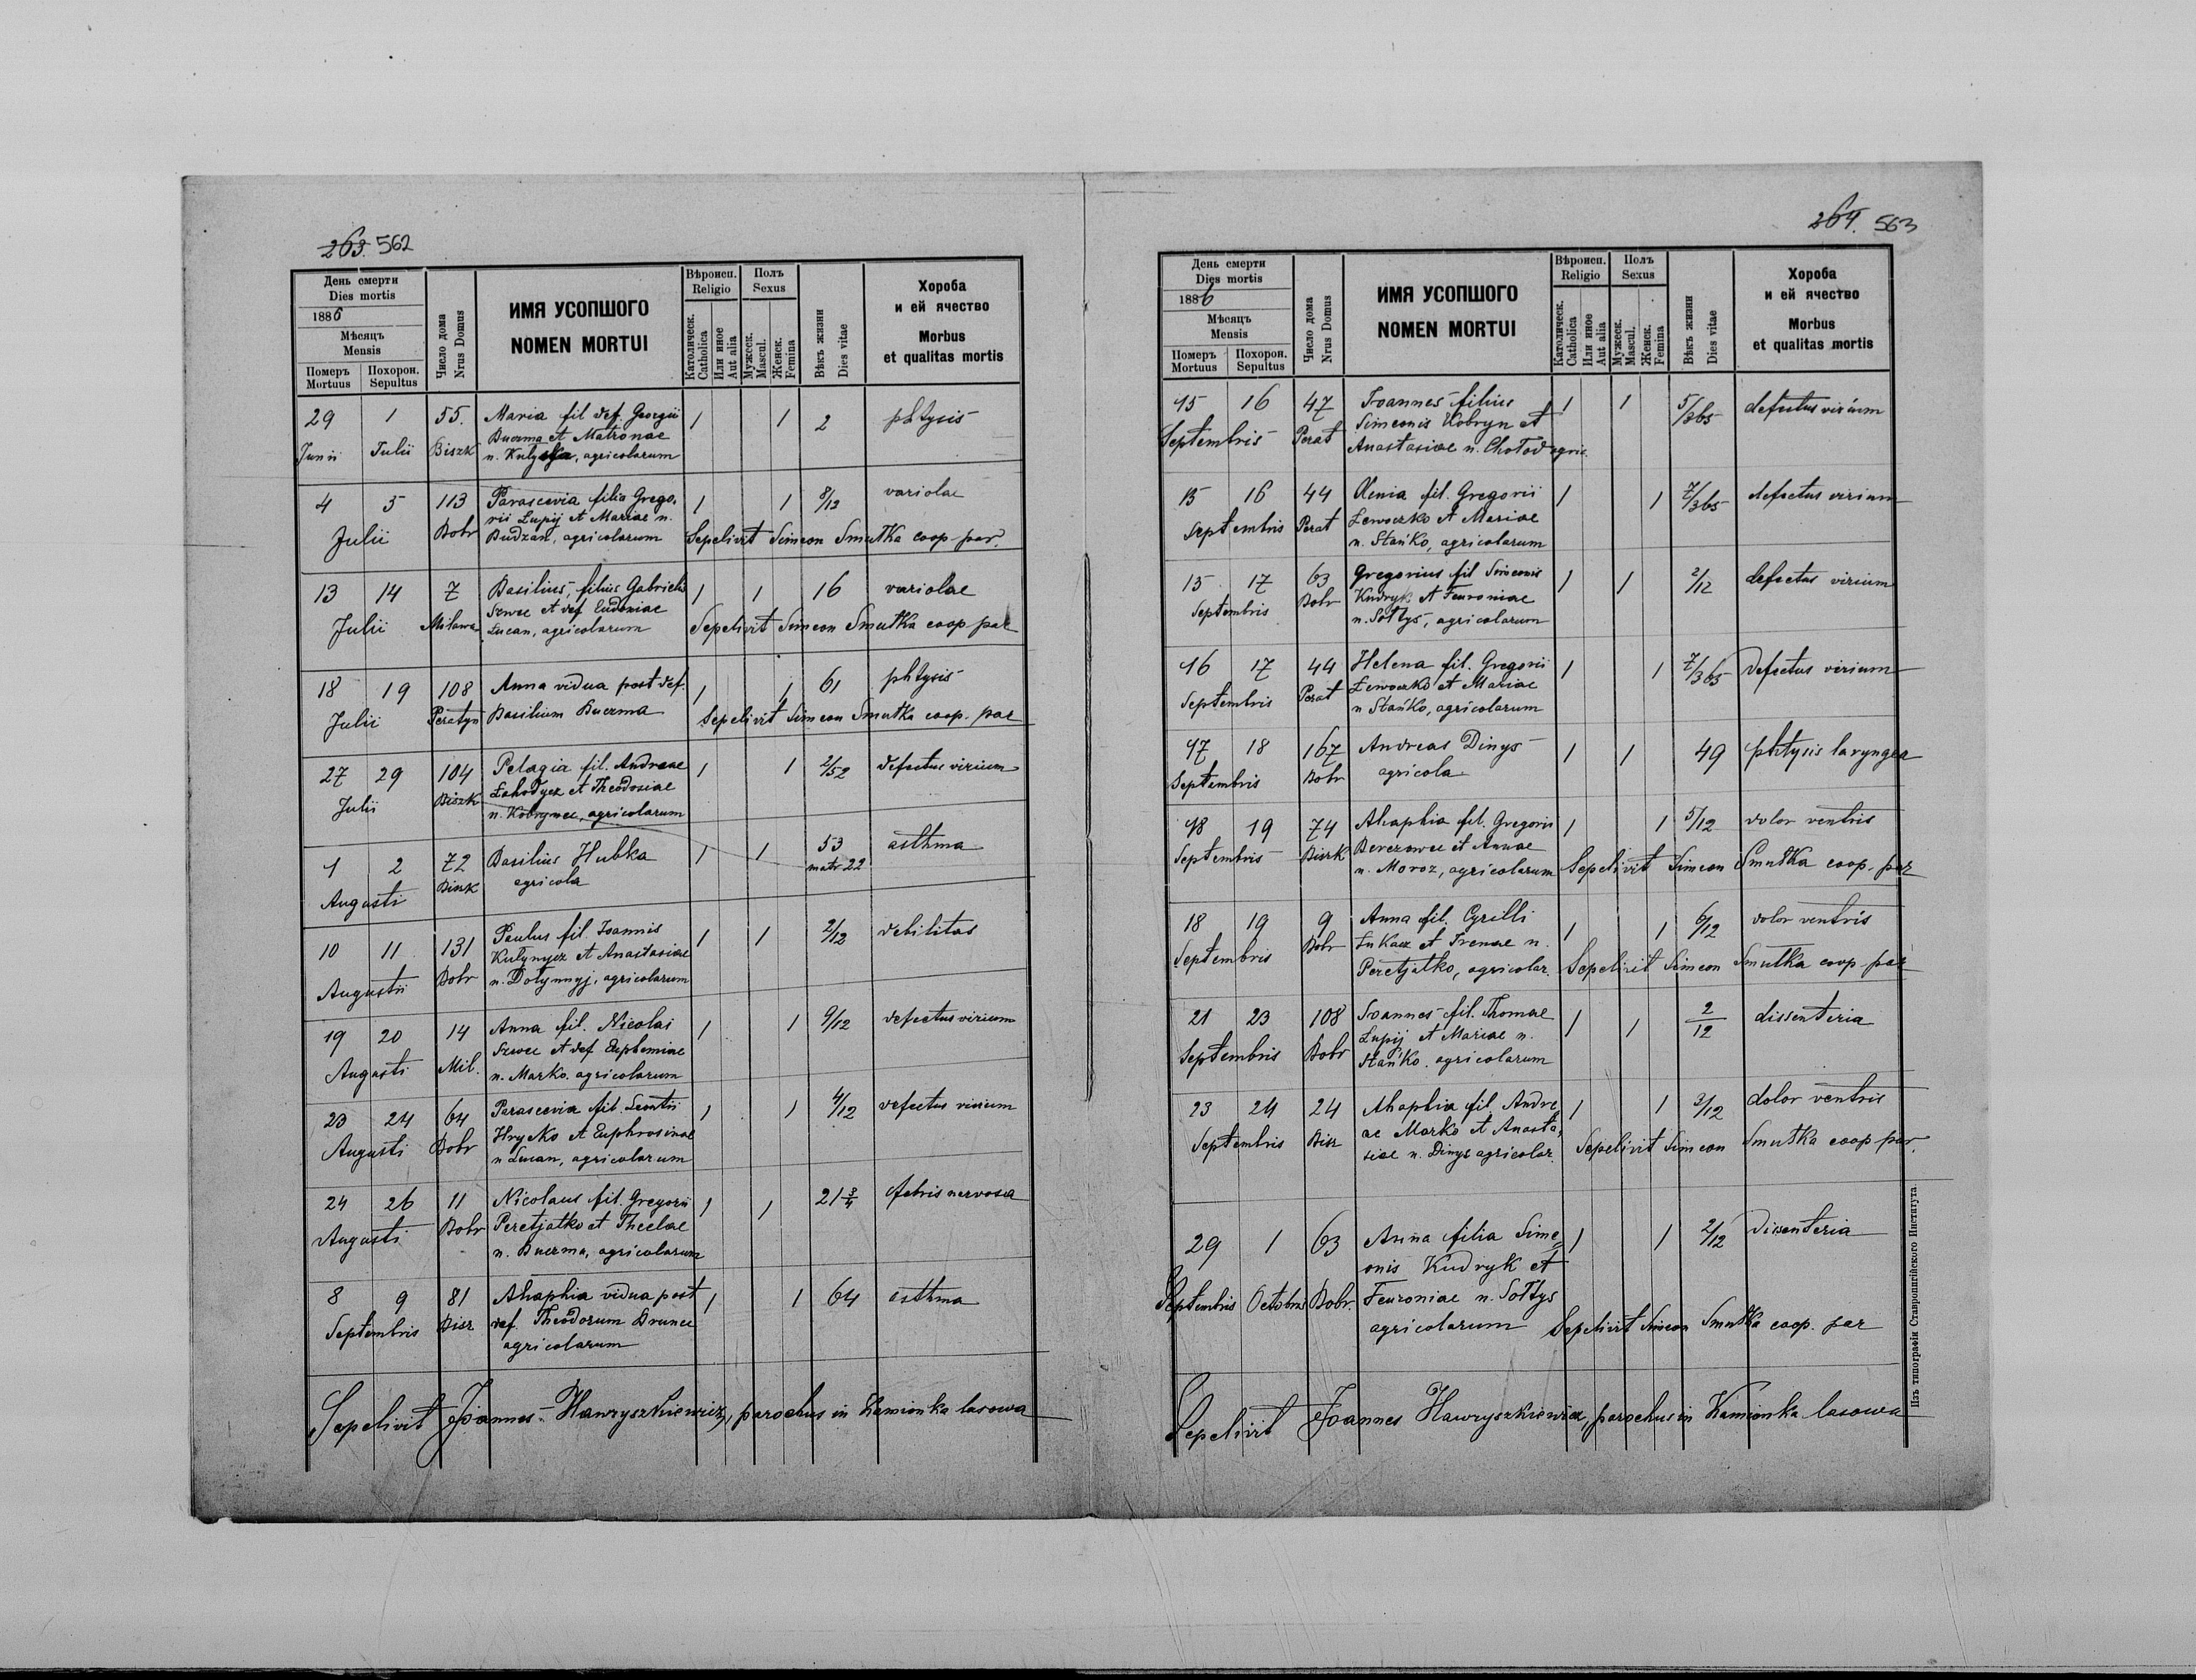 263. 562
День смерти
Dies mortis
1886
Мѣсяцъ
Mensis
Померъ
Mortuus
Похорон.
Sepultus
Число дома
Nrus Domus
ИМЯ УСОПШОГО
NOMEN MORTUI
Вѣроисп.
Religio
Католическ.
Catholica
Или иное
Aut alia
Полъ
Sexus
Мужеск.
Mascul.
Женск.
Femina
Вѣкъ жизни
Dies vitae
Хороба
и ей ячество
Morbus
et qualitas mortis
29 1 55. Maria fil def. Georgii 1 1 2 phtysis
Junii Julii Biszk Buczma et Matronae
n. agricolarum
4 5 113 Parascevia filia Grego- 1 1 8/12 variolae
Julii Bobr rii Lupij et Mariae n.
Budzan, agricolarum Sepelivit Simeon Smutka coop. par.
13 14 7 Basilius, filius Gabrielis 1 1 16 variolae
Julii Milowa Szwec et def Eudoxiae
Lucan, agricolarum Sepelivit Simeon Smutka coop par
18 19 108 Anna vidua post def. 1 1 61 phtysis
Julii Peratyn Basilium Buczma Sepelivit Simeon Smutka coop. par
27 29 104 Pelagia fil. Andreae 1 1 2/52 defectus virium
Julii Biszk Łahodycz et Theodosiae
n. Kobrynec, agricolarum
1 2 72 Basilius Hubka 1 1 53 asthma
Augusti Biszk agricola matr 22
10 11 131 Paulus fil. Joannis 1 1 2/12 debilitas
Augustii Bobr Kułynycz et Anastasiae
n. Dołynnyj, agricolarum
19 20 14 Anna fil. Nicolai 1 1 9/12 defectus virium
Augusti Mil. Szwec et def Euphemiae
n. Marko. agricolarum
23 24 64 Parascevia fil. Leontii 1 1 4/12 defectus virium
Augusti Bobr Hrycko et Euphrosinae
n Lucan, agricolarum
24 26 11 Nicolaus fil. Gregorii 1 1 21 3/4 febris nervosa
Augusti Bobr Peretjatko et Theclae
n. Buczma, agricolarum
8 9 81 Ahaphia vidua post 1 1 64 asthma
Septembris Bisz def. Theodorum Brunec
agricolarum
Sepelivit Joannes Hawryszkiewicz, parochus in Kamionka lasowa
264. 563
День смерти
Dies mortis
1886
Мѣсяцъ
Mensis
Померъ
Mortuus
Похорон.
Sepultus
Число дома
Nrus Domus
ИМЯ УСОПШОГО
NOMEN MORTUI
Вѣроисп.
Religio
Католическ.
Catholica
Или иное
Aut alia
Полъ
Sexus
Мужеск.
Mascul.
Женск.
Femina
Вѣкъ жизни
Dies vitae
Хороба
и ей ячество
Morbus
et qualitas mortis
15 16 47 Joannes filius 1 1 5/365 defectus virium
Septembris Perat Simeonis Kobryn et
Anastasiae n. Chołod agric.
15 16 44 Xenia fil. Gregorii 1 1 7/365 defectus virium
Septembris Perat Łewoczko et Mariae
n. Stańko, agricolarum
15 17 63 Gregorius fil Simeonis 1 1 2/12 defectus virium
Septembris Bobr Kudryk et Feuroniae
n. Sołtys, agricolarum
16 17 44 Helena fil. Gregorii 1 1 7/365 defectus virium
Septembris Perat Łewoczko et Mariae
n Stańko, agricolarum
17 18 167 Andreas Dinys 1 1 49 phtysis laryngea
Septembris Bobr agricola
18 19 74 Ahaphia fil. Gregorii 1 1 5/12 dolor ventris
Septembris Biszk Berezowec et Annae
n. Moroz, agricolarum Sepelivit Simeon Smutka coop. par
18 19 9 Anna fil. Cyrilli 1 1 6/12 dolor ventris
Septembris Bobr Łukacz et Irenae n.
Peretjatko, agricolar. Sepelivit Simeon Smutka coop par
21 23 108 Joannes fil. Thomae 1 1 2/12 dissenteria
Septembris Bobr Łupij et Mariae n.
Stańko. agricolarum
23 24 24 Ahaphia fil. Andre 1 1 3/12 dolor ventris
Septembris Bisz ae Marko et Anasta,
siae n. Dinys agricolar. Sepelivit Simeon Smutka coop par.
29 1 63 Anna filia Sime= 1 1 2/12 Dissenteria
onis Kudryk et
Septembris Octobris Bobr. Feuroniae n. Sołtys
agricolarum Sepelivit Simeon Smutka coop. par
Sepelivit Joannes Hawryszkiewicz, parochus in Kamionka lasowa
Изъ типографіи Ставропигійского Института.